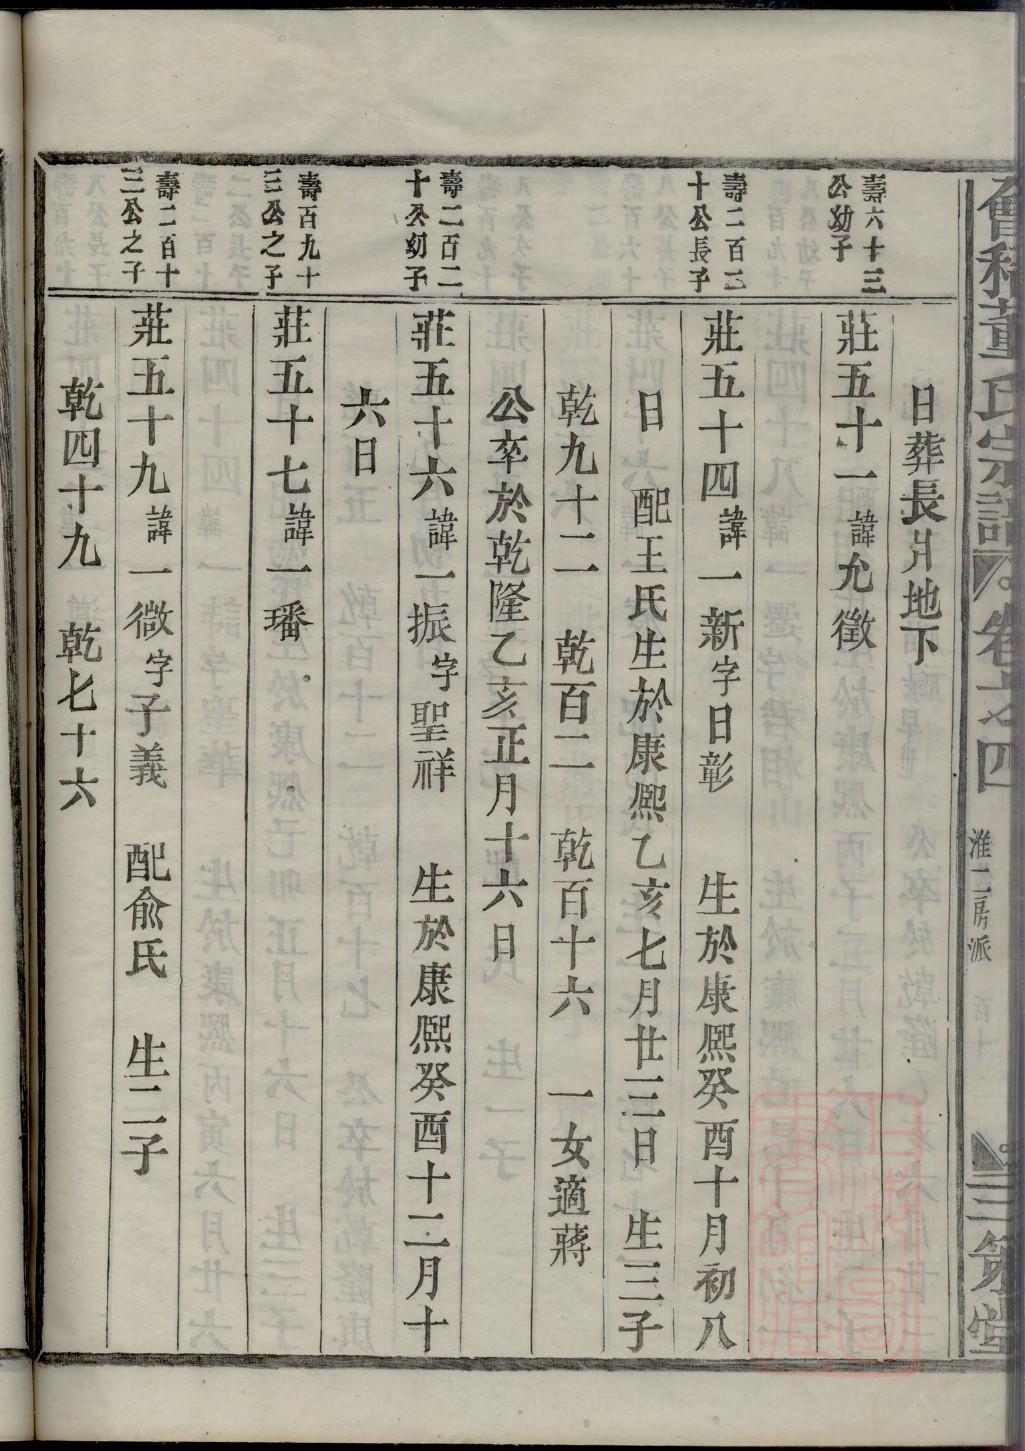 會稽董氏宗譜 卷之四 淮二房派 百十 三策堂
日葬長爿地下
壽六十三
公幼子
莊五十一諱允徵
壽二百三
十公長子
莊五十四諱一新字日彰 生於康熙癸酉十月初八
日 配王氏生於康熙乙亥七月廿三日 生三子
乾九十二 乾百二 乾百十六 一女適蔣
公卒於乾隆乙亥正月十六日
壽二百二
十公幼子
莊五十六諱一振字聖祥 生於康熙癸酉十二月十
六日
壽百九十
三公之子
莊五十七諱一璠
壽二百十
三公之子
莊五十九諱一徵字子義 配俞氏 生二子
乾四十九 乾七十六